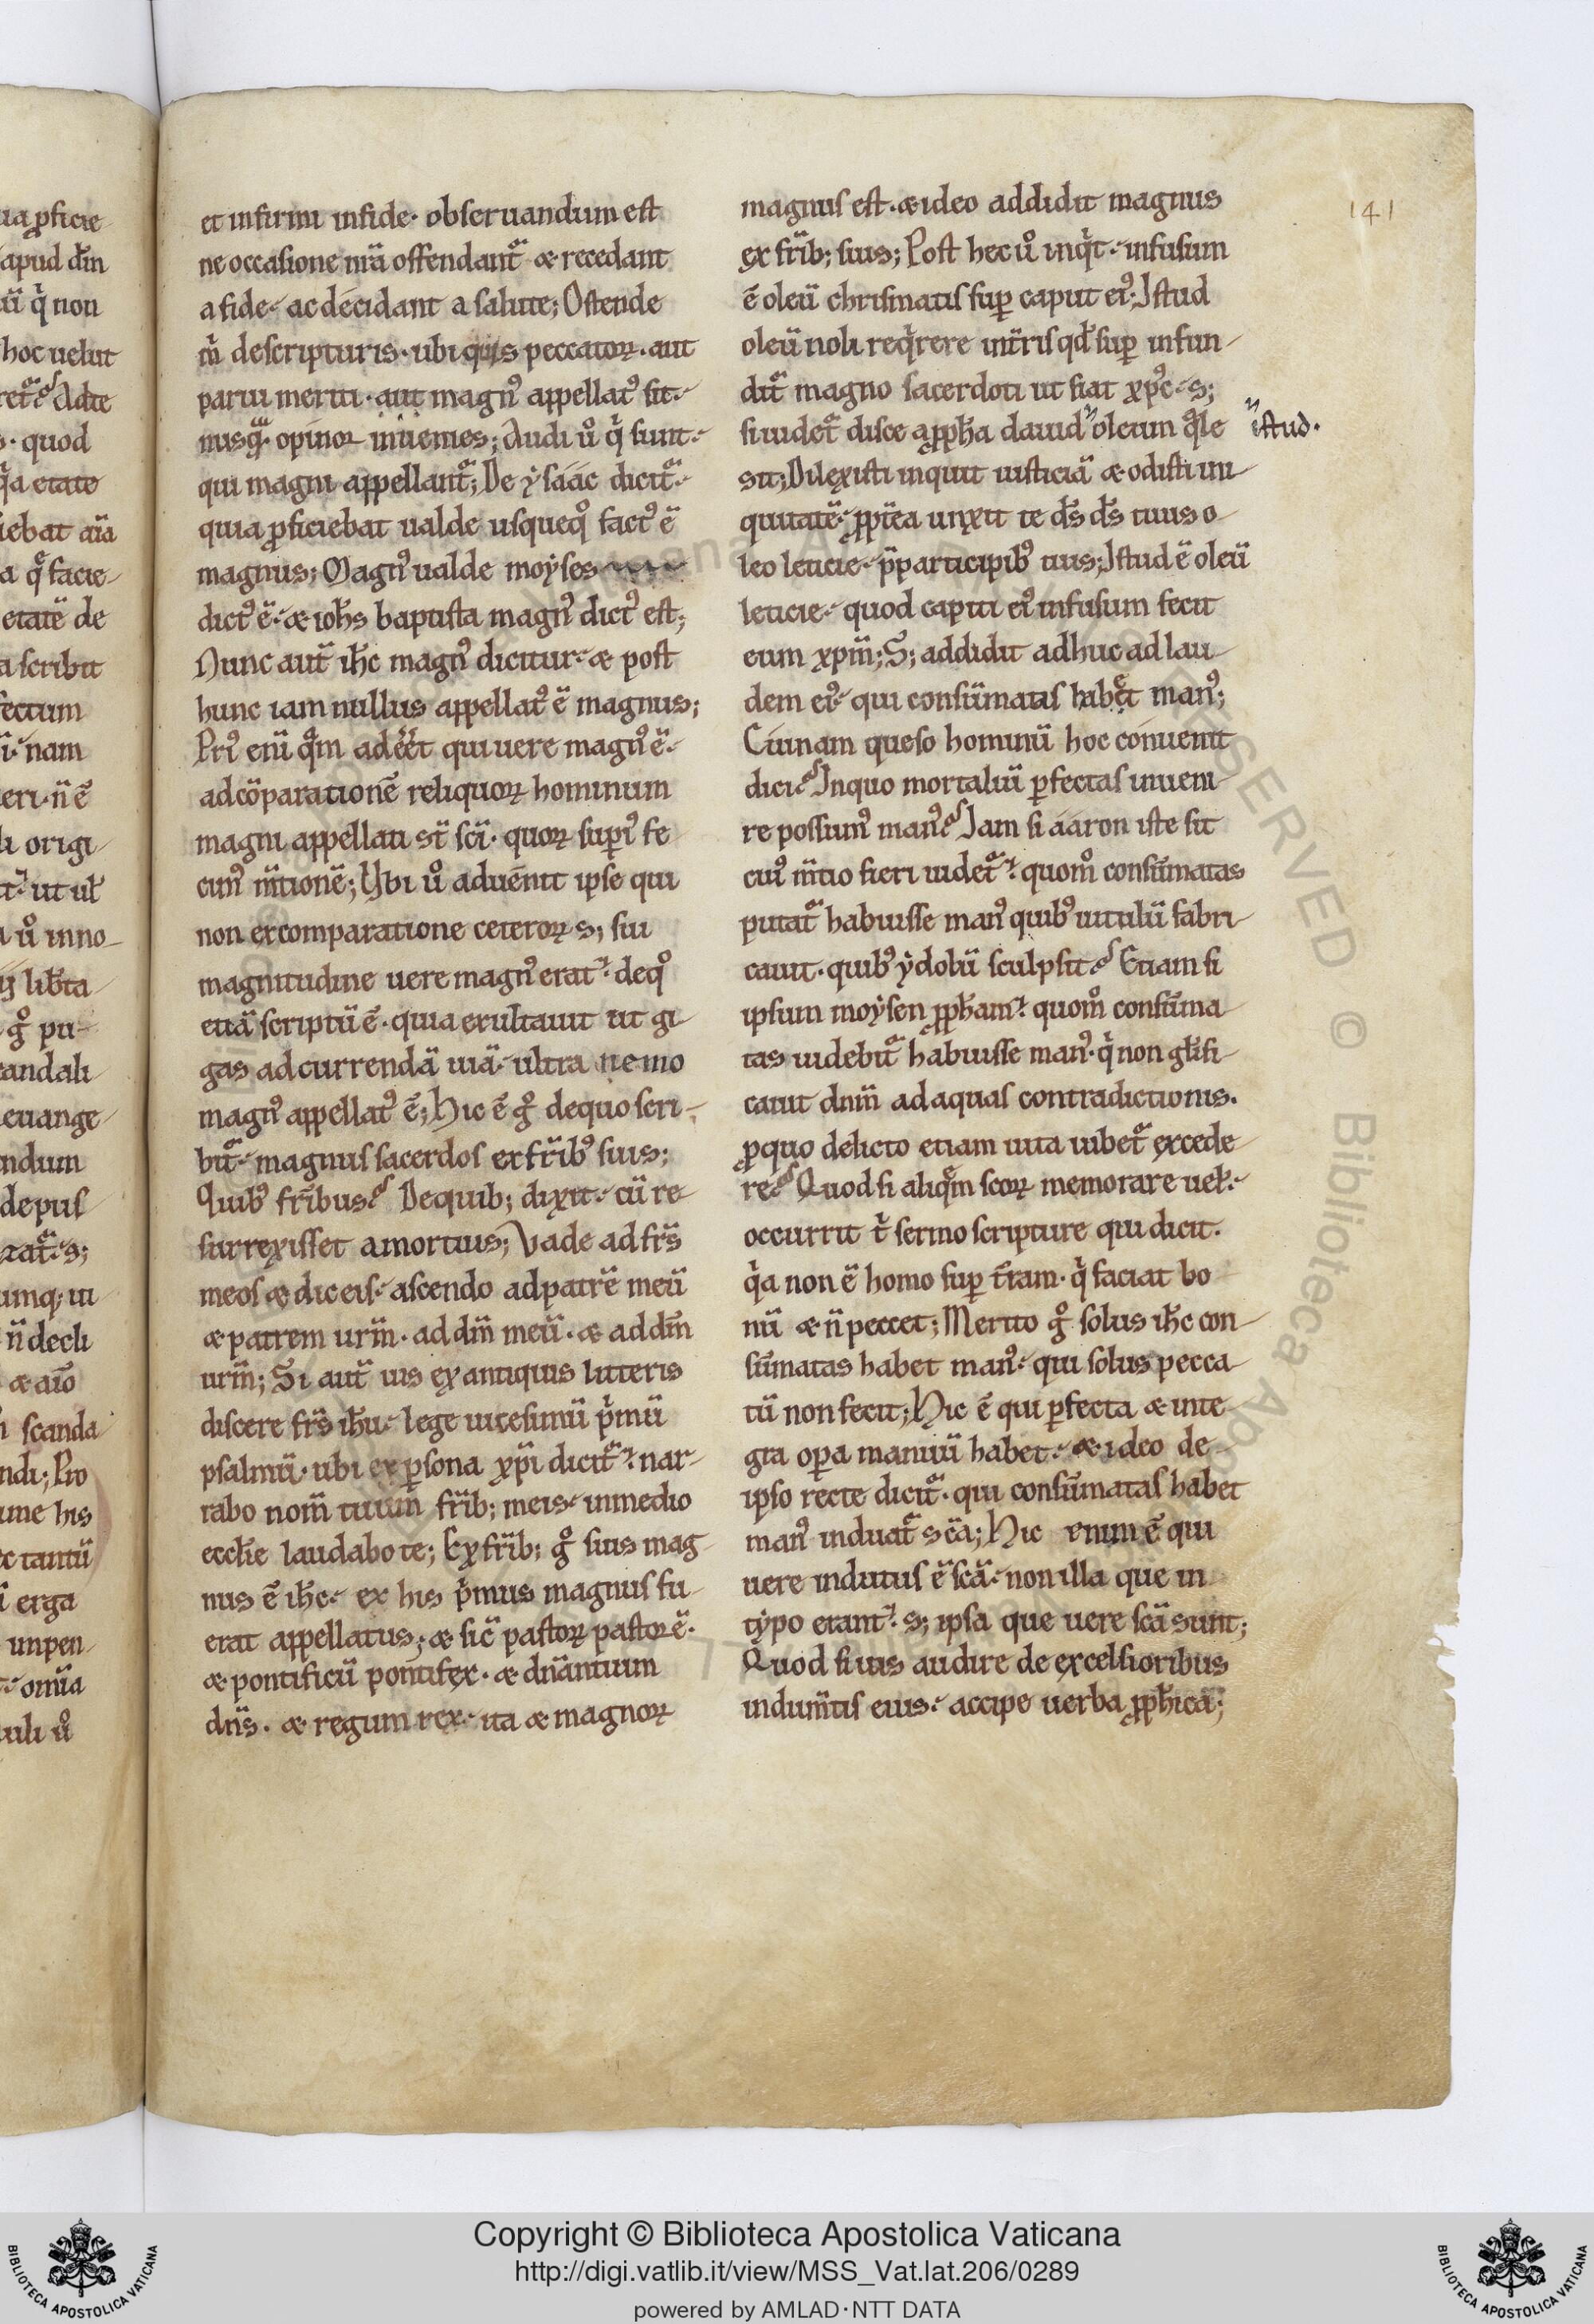 141
et infirmi infide· obseruandum est
ne occasione nr̃a offendant᷑ æ recedant
a fide· ac decidant a salute; Ostende
m̉ descripturis· ubi quis peccatoꝝ· aut
parui meriti· aut magn᾽ appellat᾽ sit·
nusq̃· opinor inuenies; Audi ů q̉ sunt·
qui magni appellant᷑; De ẏsáác dicit᷑·
quia ꝓficiebat ualde usqueq̊ fact᾽ ē
magnus; Magn᾽ ualde moẏses
dict᾽ ē· æ ioħs baptista magn᾽ dict᾽ est;
Nunc aut̃ ihc̄ magn᾽ dicitur· æ post
hunc iam nullus appellat᾽ ē magnus;
Pri᾽ enī q̃m adeēt qui uere magn᾽ ē·
adcōparationē reliquoꝝ hominum
magni appellati st̄ sc̄i· quoꝝ supi᾽ fe
cim᾽ m̃tionē; Ybi ů aduenit ipse qui
non excomparatione ceteroꝝ s; sui
magnitudine uere magn᾽ erat· deq̊
etiā scriptū ē· quia exultauit ut gi
gas ad currendā uiā· ultra nemo
magn᾽ appellat᾽ ē; Hic ē g̊ dequo scri-
bit᷑· magnus sacerdos exfr̃ib᾽ suis;
Quib᾽ fr̃ibus? Dequib; dixit· cū re
surrexisset amortuis; Vade ad fr̃s
meos æ dic eis· ascendo ad patrē meū
æ patrem ur̃m· ad dm̄ meū· æ ad dm̄
ur̃m; Si aut̃ uis ex antiquis litteris
discere fr̃s ihu· lege uicesimū p̉mū
psalmū· ubi ex ꝑsona xp̄i dicit᷑· nar-
rabo nom̃ tuum fr̃ib; meis· inmedio
eccƚie laudabo te; Ex fr̃ib; g̊ suis mag
nus ē ihc̄· ex his p̉mus magnus fu
erat appellatus; æ sic̃ pastoꝝ pastor ē·
æ pontificū pontifex· æ dn̄antium
dn̄s· æ regum rex· ita æ magnoꝝ
magnus est· æ ideo addidit magnus
ex fr̃ib; suis; Post hec ů inq̉t· infusum
ē oleū chrismatis suꝑ caput ei᾽; Istud
oleū noli req̉rere int̃ris qđ suꝑ infun
dit᷑ magno sacerdoti ut fiat xp̄c· s;
si uidet᷑ disce aꝓph̃a dauid oleum q̃le
istud·
sit; Dilexisti inquit iusticiā æ odisti ini
quitatē· ꝓpt̃ea unxit te ds̄ ds̄ tuus o
leo leticie· p̃participib᾽ tuis; Istud ē oleū
leticie· quod capiti ei᾽ infusum fecit
eum xpm̄; S; addidit adhuc ad lau
dem ei᾽· qui consūmatas habet man᾽;
Ciunam queso hominū hoc conuenit
dici? Inquo mortaliū ꝑfectas inueni
re possum᾽ man᾽? Iam si ááron iste sit
cui᾽ m̃tio fieri uidet᷑· quom̊ consūmatas
putat᷑ habuisse man᾽ quib᾽ uitulū fabri
cauit· quib᾽ ẏdolū sculpsit? Etiam si
ipsum moẏsen ꝓph̃am· quom̊ consūma
tas uidebit᷑ habuisse man᾽· q̉ non gƚifi
cauit dnm̄ ad aquas contradictionis·
ꝓquo delicto etiam uita iubet᷑ excede
re? Quod si aliq̃m scoꝝ memorare uel·
occurrit t̉ sermo scripture qui dicit·
q̉a non ē homo suꝑ t̃ram· q̉ faciat bo
nū æ ñ peccet; Merito g̊ solus ihc̄ con
sūmatas habet man᾽· qui solus pecca
tū non fecit; Hic ē qui ꝑfecta æ inte
gra oꝑa manuū habet· æ ideo de
ipso recte dicit᷑· qui consūmatas habet
man᾽ induat᷑ sc̄a; Hic enim ē qui
uere indutus ē sc̄a· non illa que in
tẏpo erant· s; ipsa que uere sc̄a sunt;
Quod si uis audire de excelsioribus
indum̃tis eius· accipe uerba ꝓph̃ica;
Copyright © Biblioteca Apostolica Vaticana
http://digi.vatlib.it/view/MSS_Vat.lat.206/0289
powered by AMLAD·NTT DATA
BIBLIOTECA APOSTOLICA VATICANA
BIBLIOTECA APOSTOLICA VATICANA